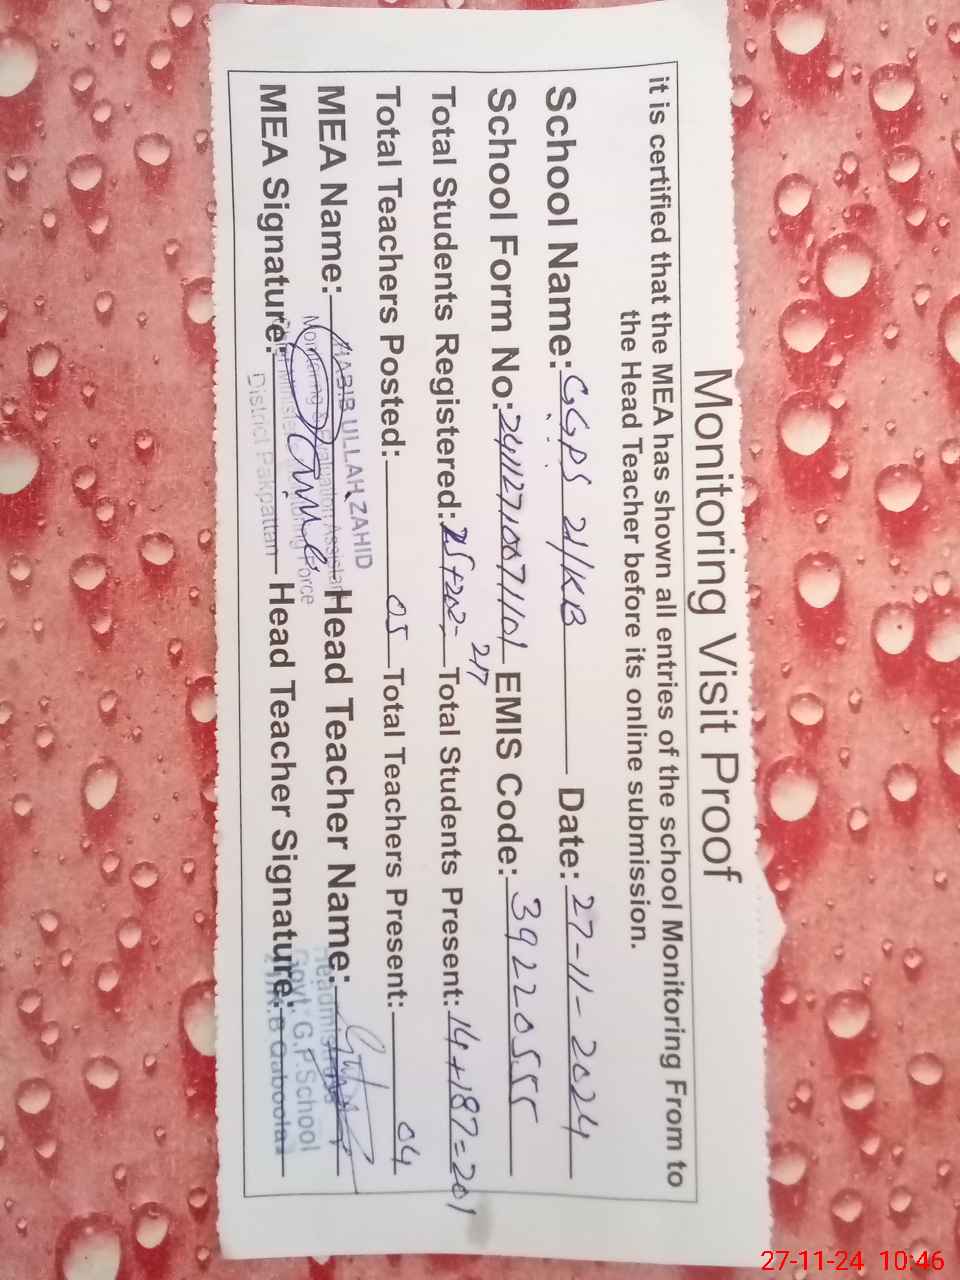 Monitoring Visit Proof
it is certified that the MEA has shown all entries of the school Monitoring From to
the Head Teacher before its online submission.
School Name: GGPS 21/KB Date: 27-11-2024
School Form No: EMIS Code: 39220555
217
Total Students Registered: Total Students Present: 14+187=201
Total Teachers Posted: 05 Total Teachers Present: 04
MEA Name: Head Teacher Name:
MEA Signature: Head Teacher Signature:
HABIB ULLAH ZAHID
Monitoring & Evaluation Assistant
District Pakpattan
Headmistress
Govt. G.P.School
21/K.B Qaboola
27-11-24 10:46